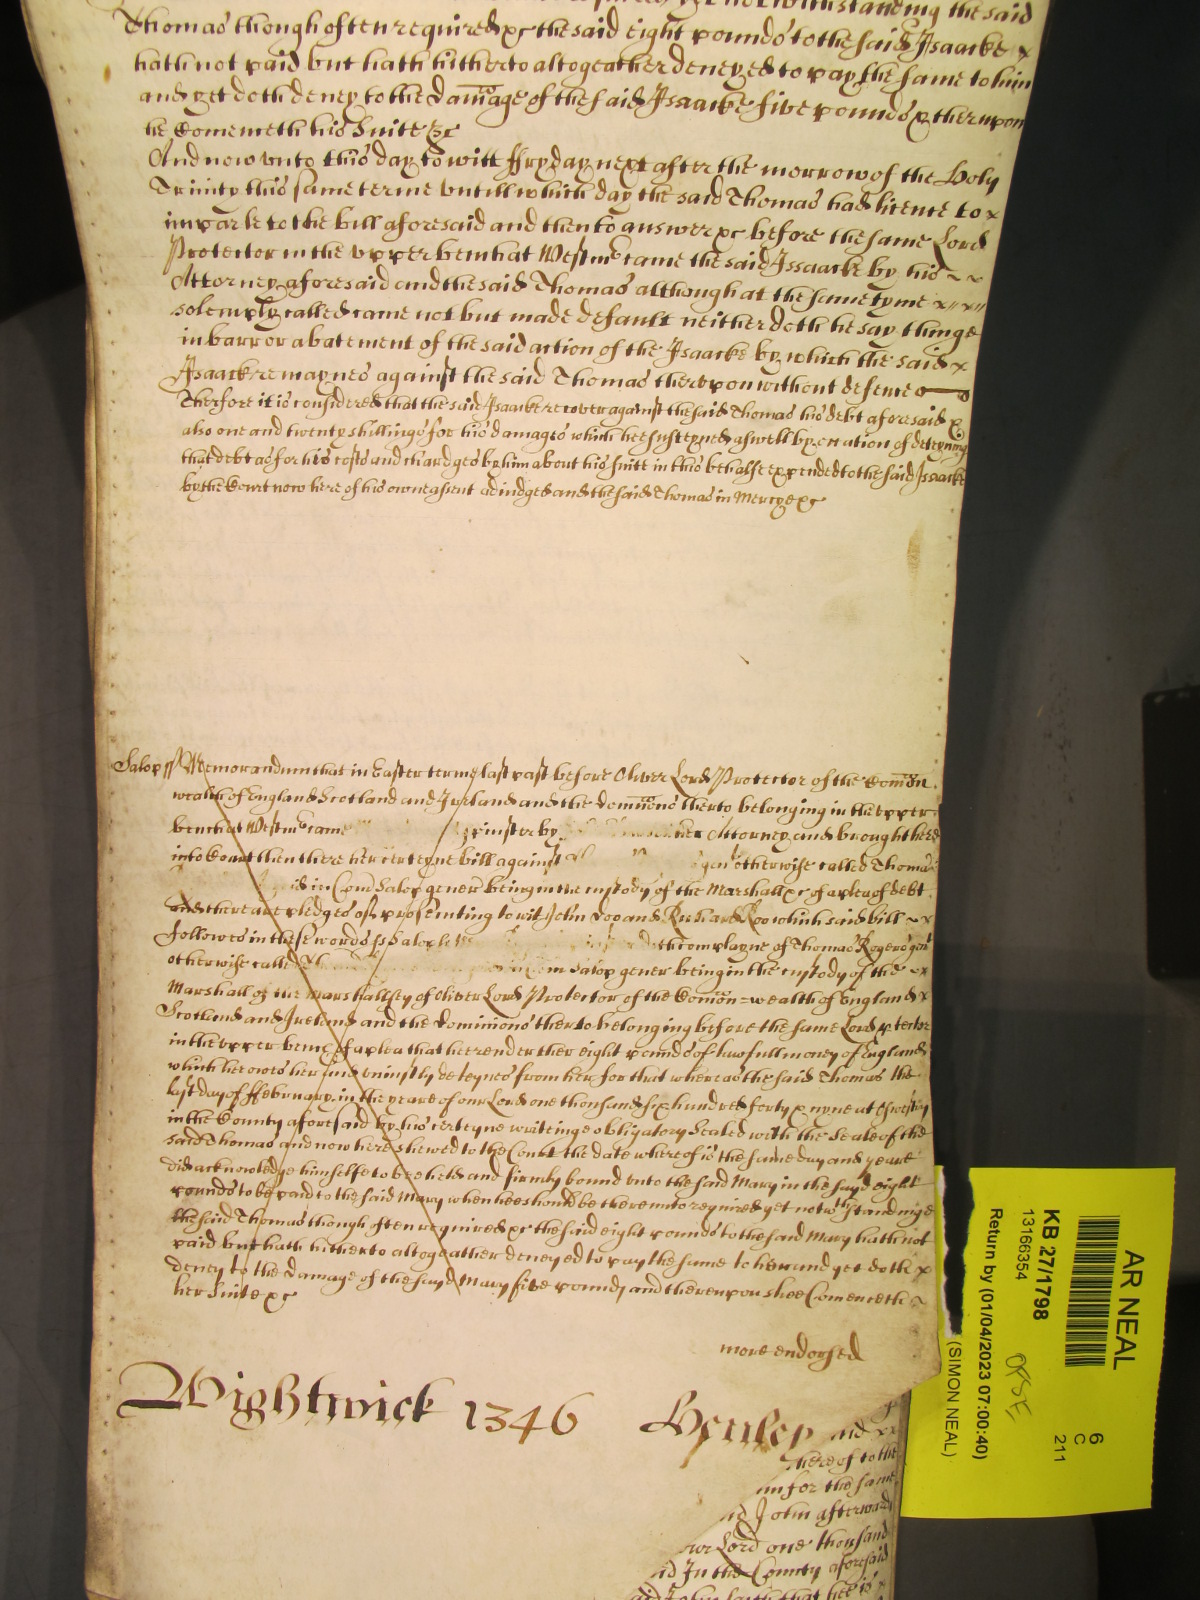 notwithstanding the said
Thomas though often required &c the said eight pounds to the said Isaacke x
hath not paid but hath hitherto altogeather deneyed to pay the same to him
and yet doth deney to the damage of the said Isaacke five pounds & therupon
he Comenceth his Suite &c
And now unto this day to witt ffryday next after the morrow of the Holy
Trinity this same terme untill which day the said Thomas had licence to x
imparle to the bill aforesaid and then to answer &c before the same Lord
Protector in the upper bench at Westmr came the said Issaacke by his ~ ~
Attorney aforesaid and the said Thomas although at the same tyme
solemply called came not but made default neither doth he say thinge
in barr or abatement of the said action of the Isaacke by which the said x
Isaacke remaynes against the said Thomas therupon without defence
Therfore it is considered that the said Isaacke recover against the said Thomas his debt aforesaid &
also one and twenty shillings for his damages which hee susteyned aswell by occation of deteyning
that debt as for his costs and chardges by him about his suite in this behalfe expended to the said Isaacke
by the Court now here of his owne assent adiudged and the said Thomas in Mercye &c
Salop ss Memorandum that in Easter terme last past before Oliver Lord Protector of the Comon
wealth of England Scotland and Ireland and the dominions therto belonging in the upper
bench at Westmr came spinster by her Attorney and brought here
into Court then there her certeyne bill against gen otherwise called Thomas
in Com Salop gener being in the custody of the Marshall &c of a plea of debt
and there are pledges of prosecuting to wit John Doo and Richard Roo which said bill ~ x
followes in these words ss Salop complayne of Thomas Rogers gen
otherwise called in Salop gener being in the custody of the x
Marshall of the marshallsey of Oliver Lord Protector of the Comon=wealth of England x
Scotland and Ireland and the dominions therto belonging before the same Lord ptector
in the upper bench of a plea that hee render her eight pounds of lawfull money of England
which hee owes her and uniustly deteynes from her for that whereas the said Thomas the
last day of ffebruary in the yeare of our Lord one thousand six hundred forty & nyne at Oswestry
in the County aforesaid by his certeyne writeinge obligatory Sealed with the Seale of the
said Thomas and now here shewed to the Court the date whereof is the same day and yeare
did acknowledge himselfe to bee held and firmly bound unto the said Mary in the sayd eight
pounds to be paid to the said Mary when hee should be thereunto required yet notwthstandinge
the said Thomas though often required &c the said eight pounds to the said Mary hath not
paid but hath hitherto altogeather deneyed to pay the same to her and yet doth x
deney to the damage of the sayd Mary five pounds and thereupon shee Comenceth ~
her Suite &c
more endorsed
Wightwick 1346 Henley
and
thereof to the
in for the same
John afterward
our Lord one thousand
In the County aforesaid
John saith that hee is
AR NEAL
KB 27/1798
13166354
Return by (01/04/2023 07:00:40)
(SIMON NEAL)
6
C
211